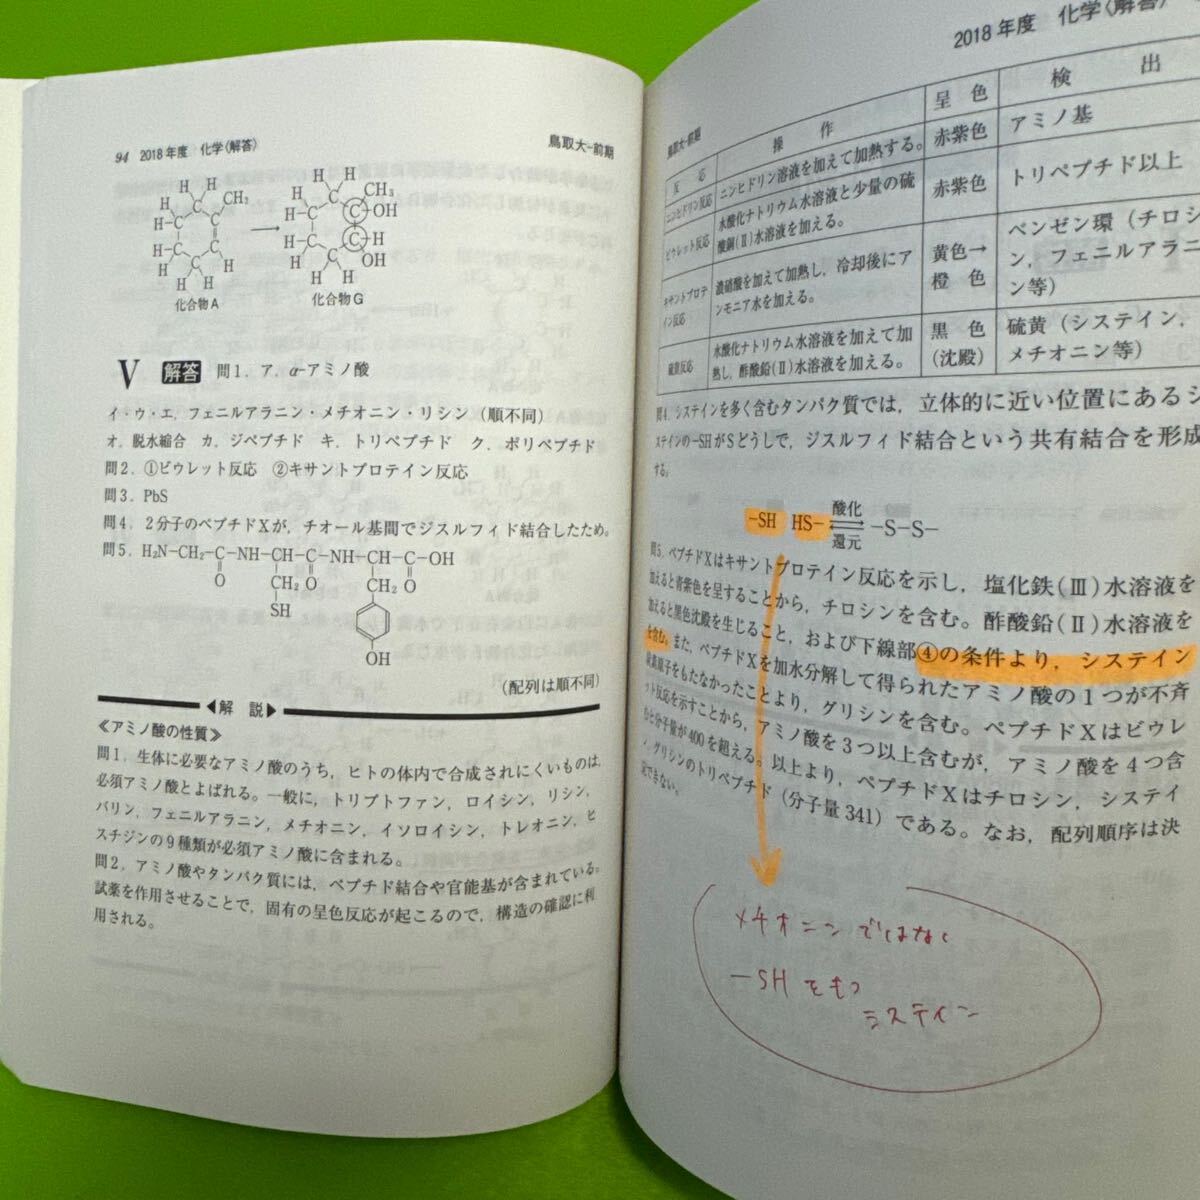 94 2018年度 化学〈解答〉 鳥取大-前期
化合物A 化合物G
V 解答 問1．ア．α-アミノ酸
イ・ウ・エ．フェニルアラニン・メチオニン・リシン（順不同）
オ．脱水縮合 カ．ジペプチド キ．トリペプチド ク．ポリペプチド
問2．①ビウレット反応 ②キサントプロテイン反応
問3．PbS
問4．2分子のペプチドXが，チオール基間でジスルフィド結合したため。
問5．H₂N-CH₂-C-NH-CH-C-NH-CH-C-OH
O CH₂ O CH₂ O
SH
OH
（配列は順不同）
◀解 説▶
≪アミノ酸の性質≫
問1．生体に必要なアミノ酸のうち，ヒトの体内で合成されにくいものは，
必須アミノ酸とよばれる。一般に，トリプトファン，ロイシン，リシン，
バリン，フェニルアラニン，メチオニン，イソロイシン，トレオニン，ヒ
スチジンの9種類が必須アミノ酸に含まれる。
問2．アミノ酸やタンパク質には，ペプチド結合や官能基が含まれている。
試薬を作用させることで，固有の呈色反応が起こるので，構造の確認に利
用される。
鳥取大-前期 2018年度 化学〈解答〉
反 応 操 作 呈 色 検 出
ニンヒドリン反応 ニンヒドリン溶液を加えて加熱する。 赤紫色 アミノ基
ビウレット反応 水酸化ナトリウム水溶液と少量の硫
酸銅(Ⅱ)水溶液を加える。 赤紫色 トリペプチド以上
キサントプロテ
イン反応 濃硝酸を加えて加熱し，冷却後にア
ンモニア水を加える。 黄色→
橙 色 ベンゼン環（チロシ
ン，フェニルアラニ
ン等）
硫黄反応 水酸化ナトリウム水溶液を加えて加
熱し，酢酸鉛(Ⅱ)水溶液を加える。 黒 色
（沈殿） 硫黄（システイン，
メチオニン等）
問4．システインを多く含むタンパク質では，立体的に近い位置にあるシ
ステインの-SHがSどうしで，ジスルフィド結合という共有結合を形成
する。
-SH HS- 酸化 ⇌ 還元 -S-S-
問5．ペプチドXはキサントプロテイン反応を示し，塩化鉄(Ⅲ)水溶液を
加えると青紫色を呈することから，チロシンを含む。酢酸鉛(Ⅱ)水溶液を
加えると黒色沈殿を生じること，および下線部④の条件より，システイン
を含む。また，ペプチドXを加水分解して得られたアミノ酸の1つが不斉
炭素原子をもたなかったことより，グリシンを含む。ペプチドXはビウレ
ット反応を示すことから，アミノ酸を3つ以上含むが，アミノ酸を4つ含
むと分子量が400を超える。以上より，ペプチドXはチロシン，システイ
ン，グリシンのトリペプチド（分子量341）である。なお，配列順序は決
定できない。
メチオニンではなく
-SHをもつ
システイン